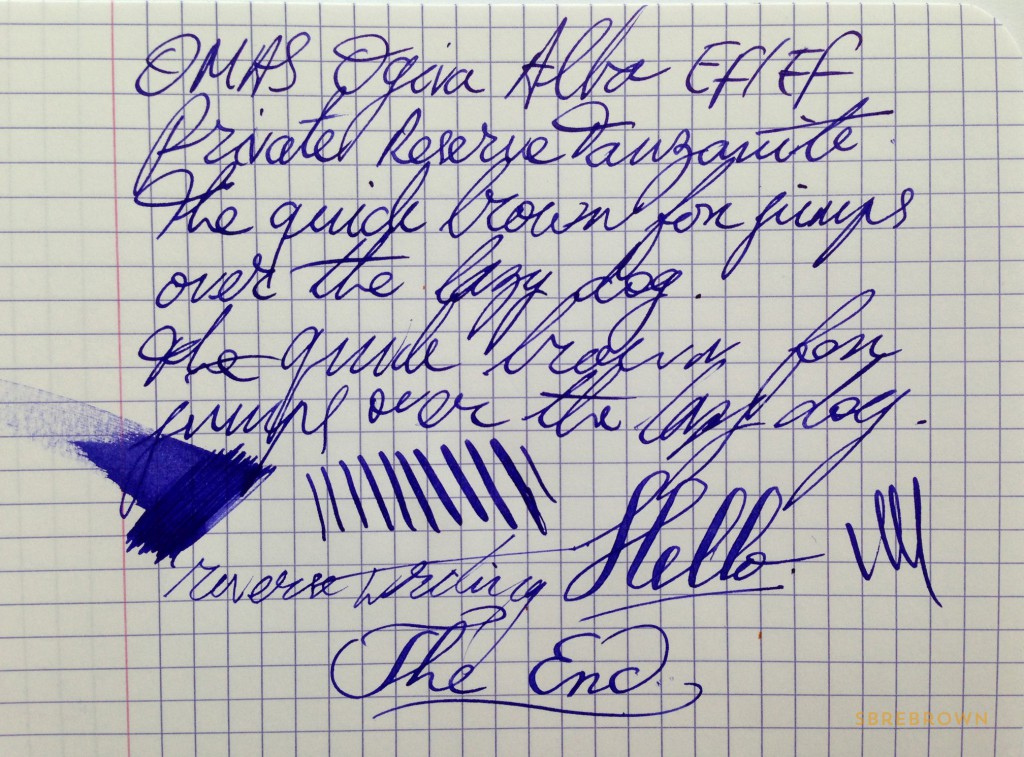 OMAS Ogiva Alba EF/EF
Private Reserve Tanzanite
The quick brown fox jumps
over the lazy dog.
The quick brown fox
jumps over the lazy dog.
Hello.
reverse writing
The End.
SBREBROWN